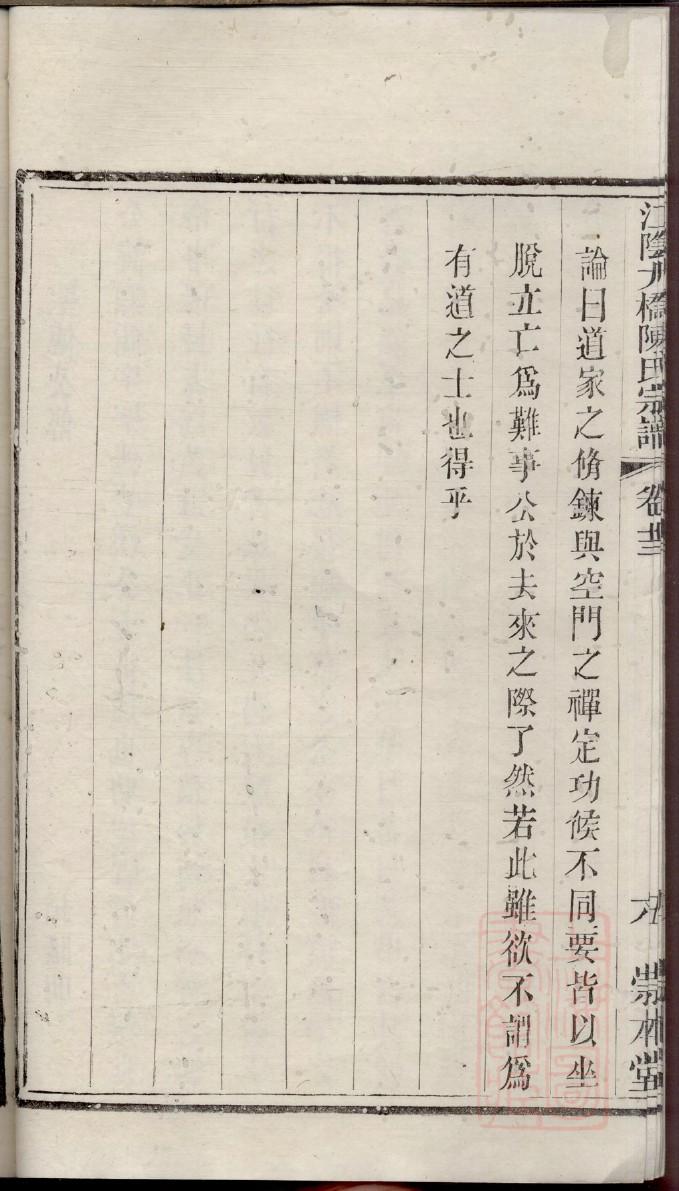 江陰九橋陳氏宗譜
卷廿三
崇本堂
論曰道家之脩鍊與空門之禪定功候不同要皆以坐
脫立亡爲難事公於去來之際了然若此雖欲不謂爲
有道之士也得乎